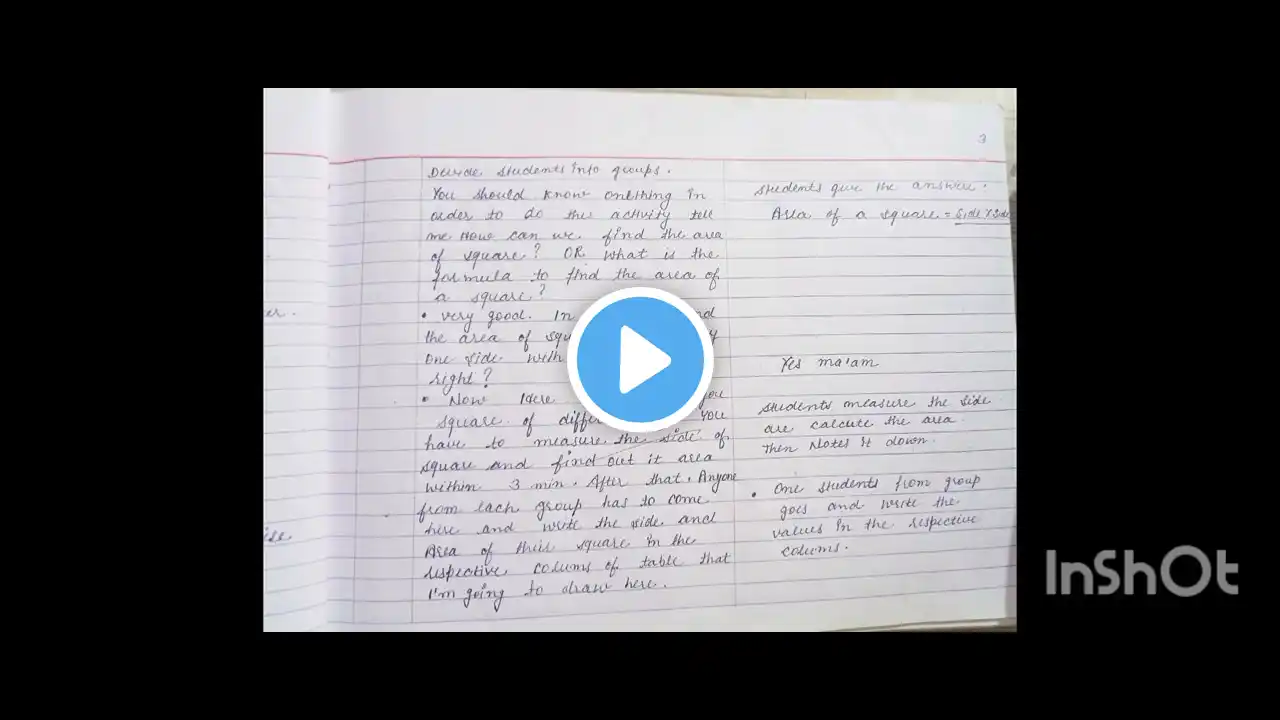 3
Devide students into groups.
You should know onething in
order to do this activity tell
me How can we find the area
of square? OR what is the
formula to find the area of
a square?
• very good. In
the area of
one side with
right?
• Now Here you
square of You
have to measure the side of
square and find out it area
within 3 min. After that. Anyone
from each group has to come
here and write the side and
Area of their square in the
respective colums of table that
I'm going to draw here.
students give the answer.
Area of a square = Side x Side
Yes ma'am
students measure the side
are calcute the area
then Notes it down.
• One students from group
goes and write the
values in the respective
colums.
InShOt